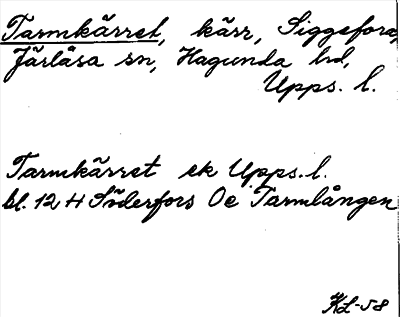 Tarmkärret, kärr, Siggefora,
Järlåsa sn, Hagunda hd,
Upps. l.
Tarmkärret ek Upps. l.
bl. 12 H Söderfors Oe Tarmlången
KL-58